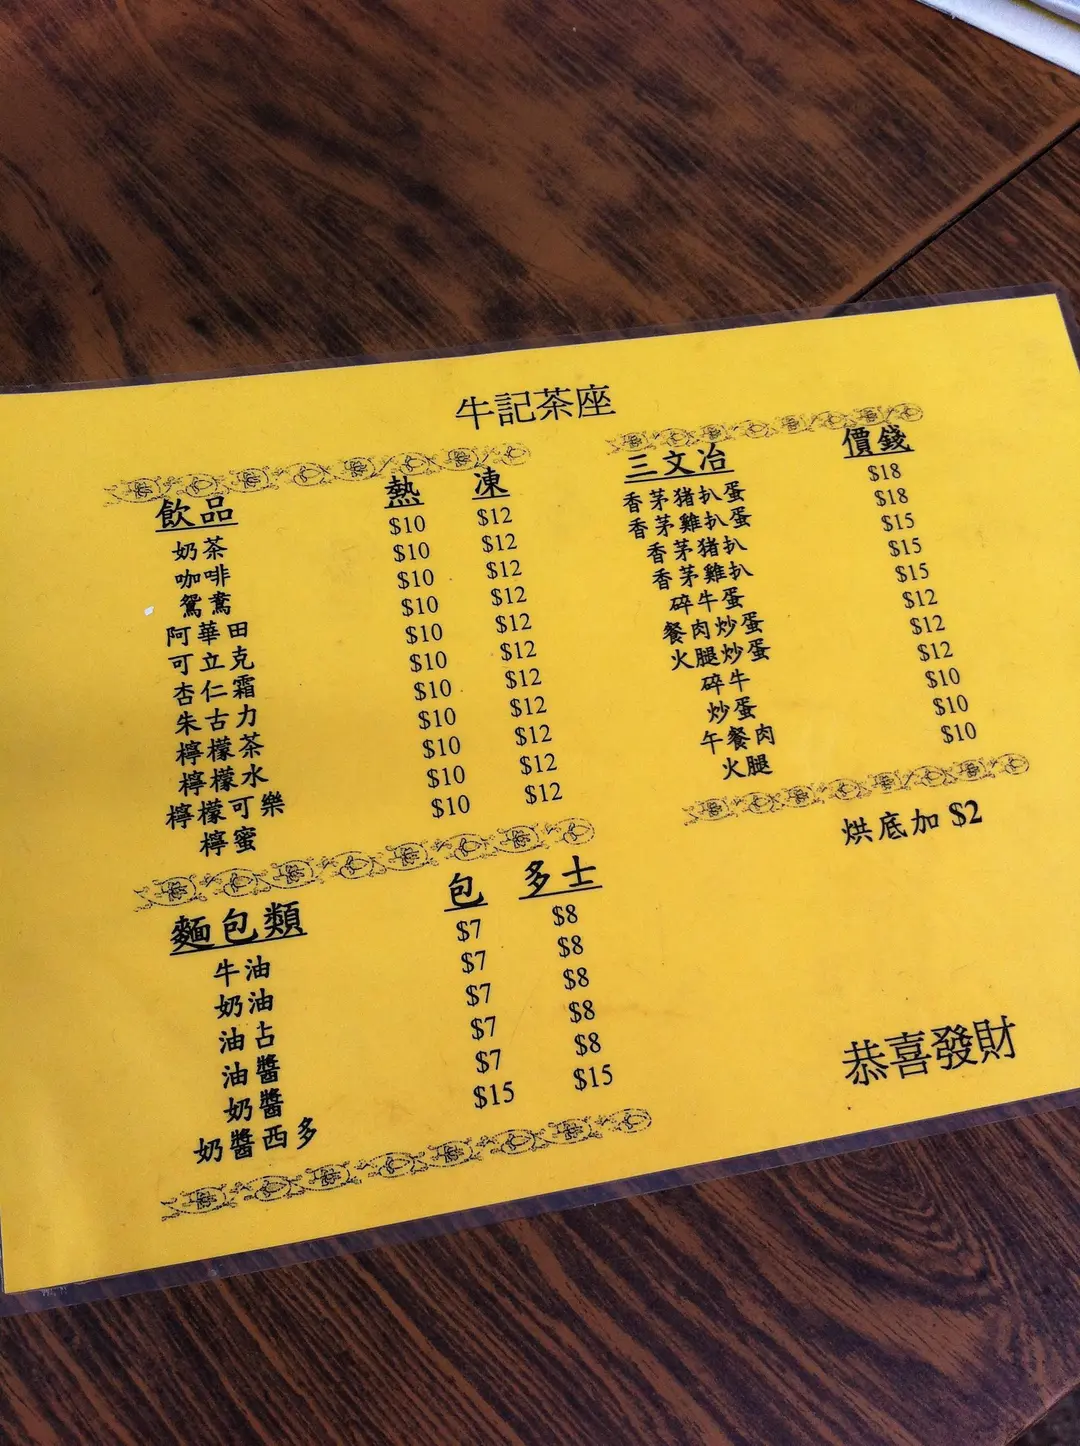 牛記茶座
飲品 熱 凍
奶茶 $10 $12
咖啡 $10 $12
鴛鴦 $10 $12
阿華田 $10 $12
可立克 $10 $12
杏仁霜 $10 $12
朱古力 $10 $12
檸檬茶 $10 $12
檸檬水 $10 $12
檸檬可樂 $10 $12
檸蜜 $10 $12
麵包類 包 多士
牛油 $7 $8
奶油 $7 $8
油占 $7 $8
油醬 $7 $8
奶醬 $7 $8
奶醬西多 $15 $15
三文治 價錢
香茅猪扒蛋 $18
香茅雞扒蛋 $18
香茅猪扒 $15
香茅雞扒 $15
碎牛蛋 $15
餐肉炒蛋 $12
火腿炒蛋 $12
碎牛 $12
炒蛋 $10
午餐肉 $10
火腿 $10
烘底加 $2
恭喜發財